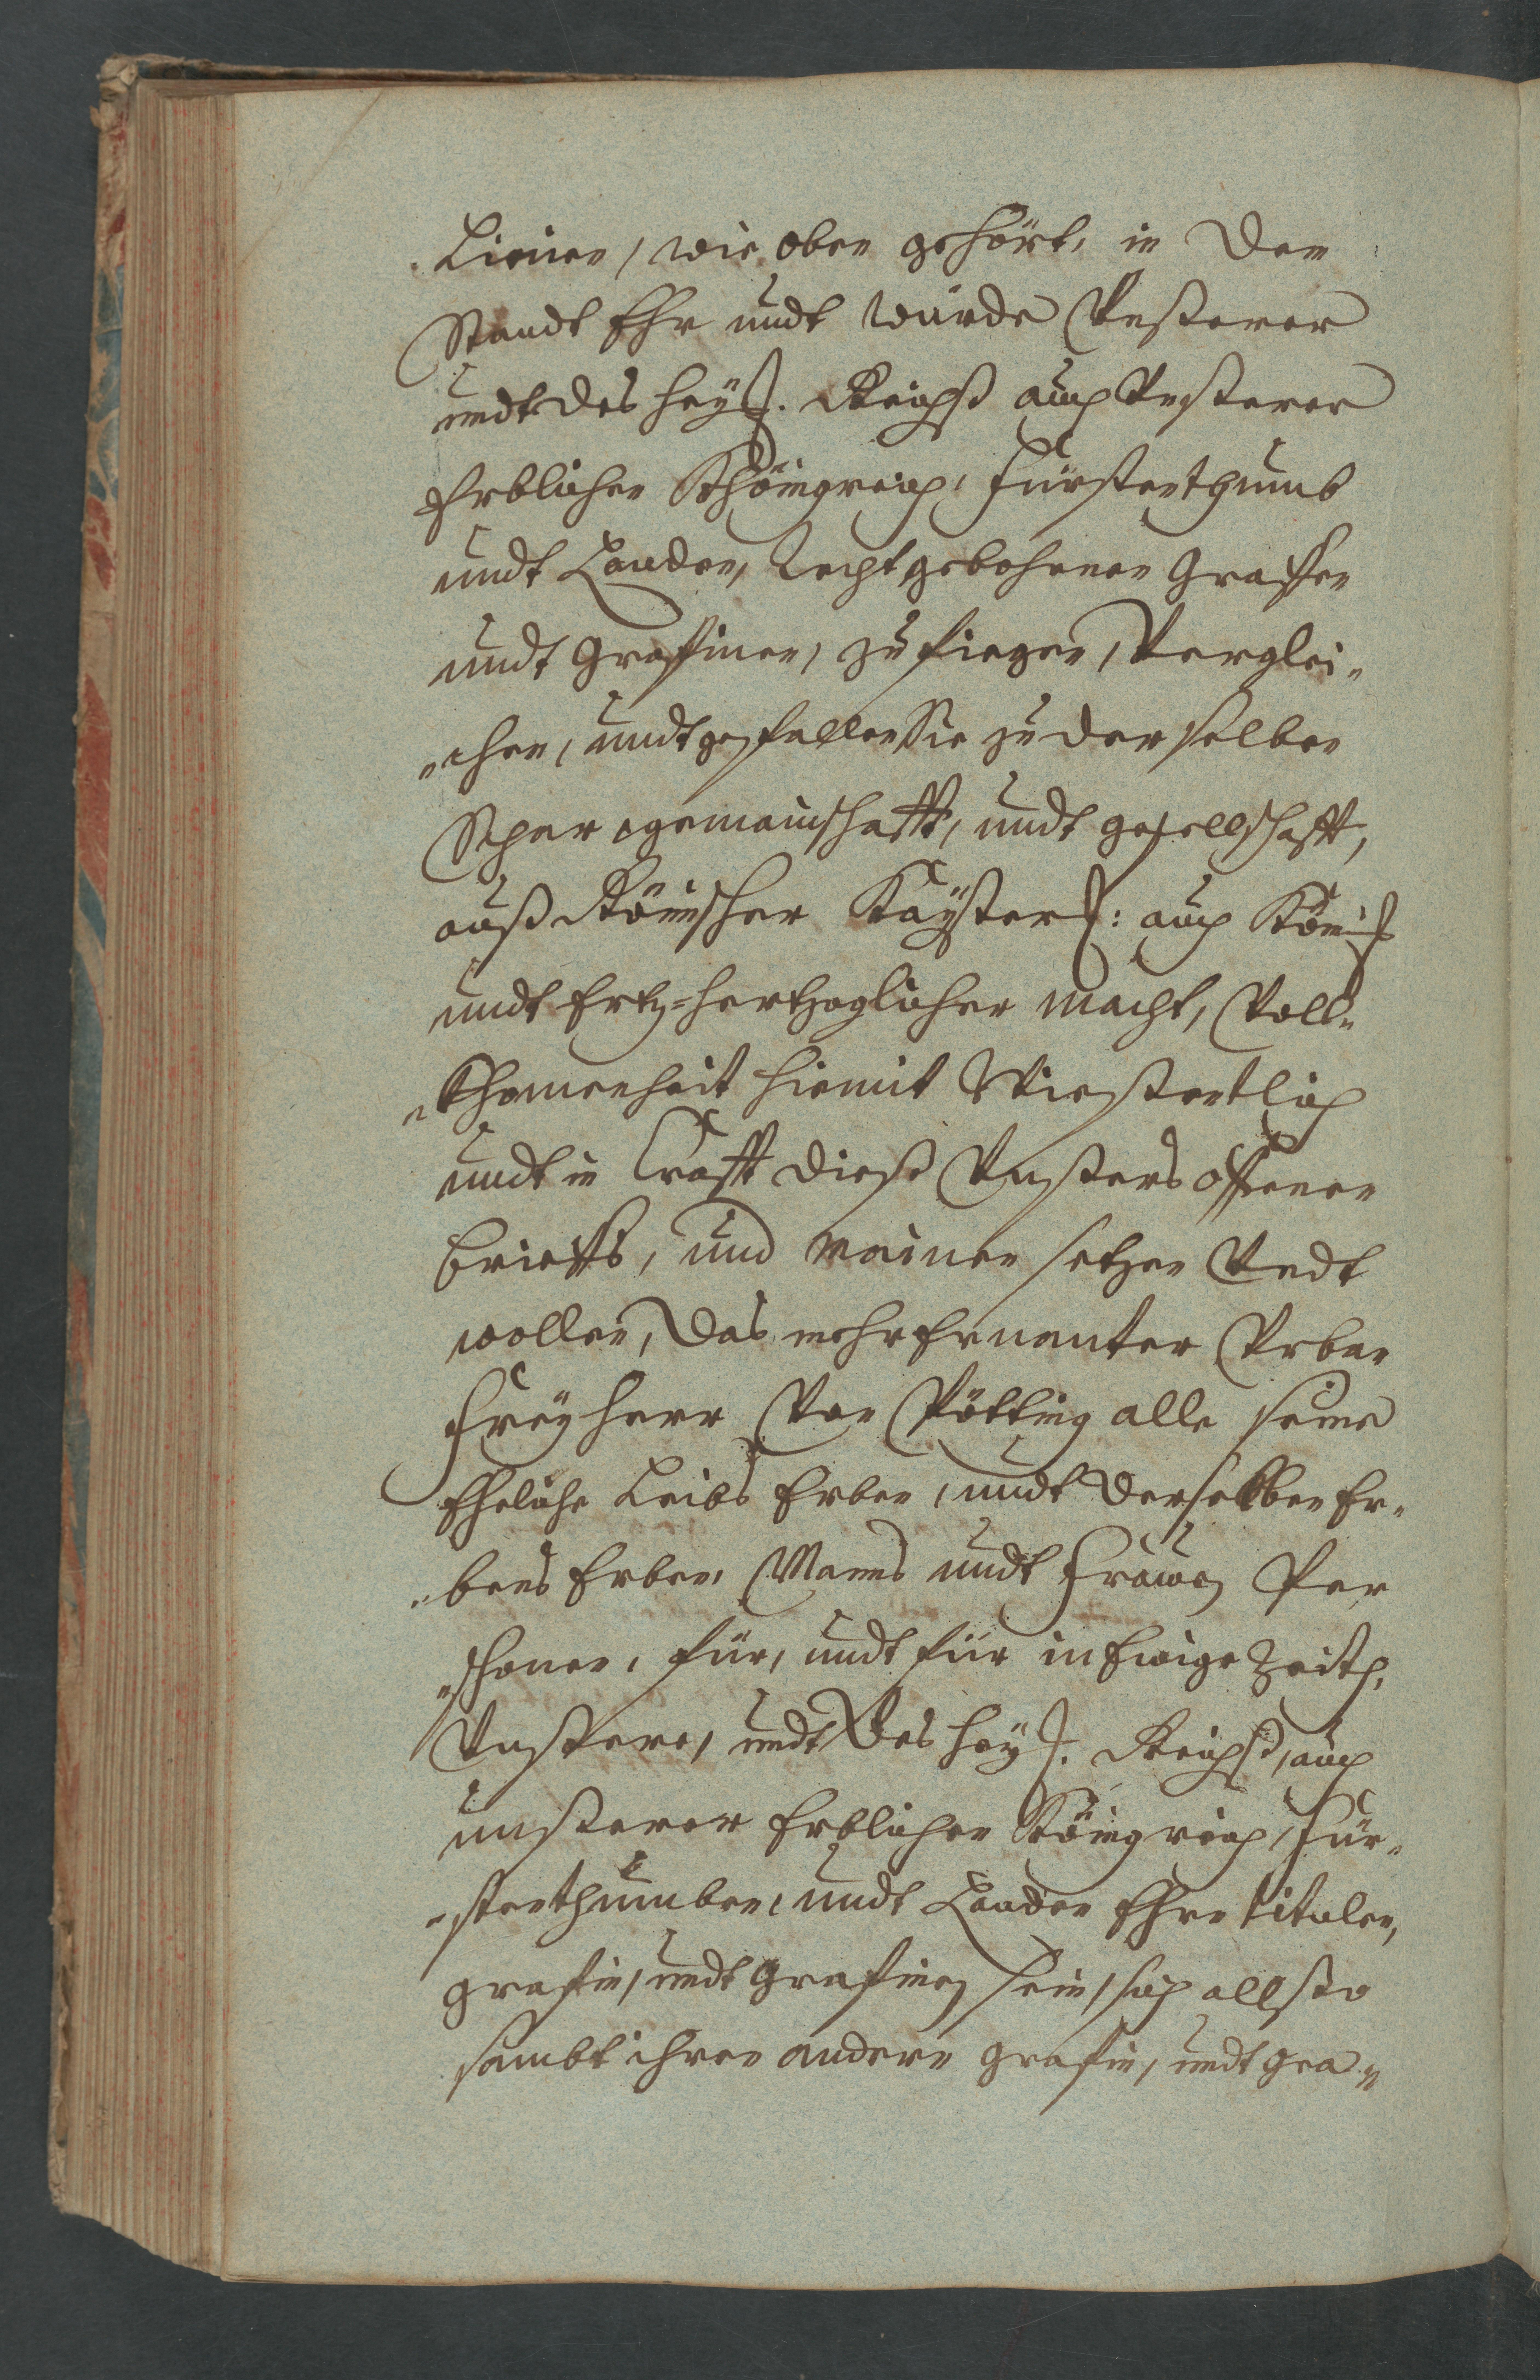 Linien, wie oben gehört, in den
Standt Ehr undt würde Vnßerer
undt des heyl. Reichß auch Vnßerer
Erblichen Khönigreich, Fürstenthumb
undt Landen, Recht gebohrnen Graffen
undt Graffinen, zufiegen, Verglei-
-chen, undt gesellen Sie zu derselben
Schar gemainschafft, undt gesellschafft,
auß Römischer Kayßerl: auch Königl
undt Ertz-hertzoglicher macht, Voll-
-khomenheit hiemit Wissentlich
undt in Crafft dieß Vnßers offenen
brieffs, und meinen setzen Vndt
wollen, das mehrernenter Vrban
Freyherr Von Pötting alle seine
Eheliche Leibs Erben, undt derselben Er-
-bens Erben, Manns undt Frawen Per
-sohnen, für, undt für in Ewige Zeith,
Vnßere, undt des heyl. Reichß, auch
unßerer Erblichen Königreich, Für-
-stenthumben, undt Landen Ehrn titulen,
grafen, undt Grafinen sein, sich allßo
sambt ihren andern grafen, undt Gra-